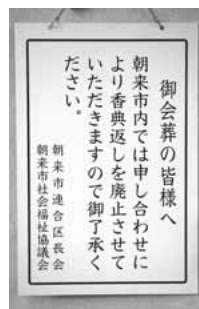 御会葬の皆様へ
朝来市内では申し合わせに
より香典返しを廃止させて
いただきますので御了承く
ださい。
朝来市連合区長会
朝来市社会福祉協議会